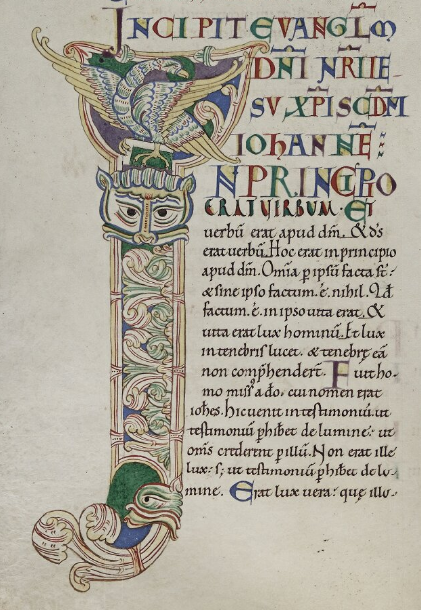 INCIPIT EVANGLM
DNI NRI IE
SV XPI SCDM
IOHANNE:
IN PRINCIPIO
ERAT VERBUM. Et
uerbū erat apud dm̄. & ds̄
erat uerbū. Hoc erat in principio
apud dm̄. Om̄ia p ipsū facta st̄:
& sine ipso factum. ē. nihil. Qd̄
factum. ē. in ipso uita erat. &
uita erat lux hominū. Et lux
in tenebris lucet. & tenebrę eā
non conp̄hendert̄. Fuit ho-
mo miss᾽ a dō. cui nomen erat
iohēs. Hic uenit in testimoniū. ut
testimoniū phibet de lumine: ut
om̄s crederent p illū. Non erat ille
lux: s; ut testimoniū phibet de lu-
mine. Erat lux uera: quę illu-